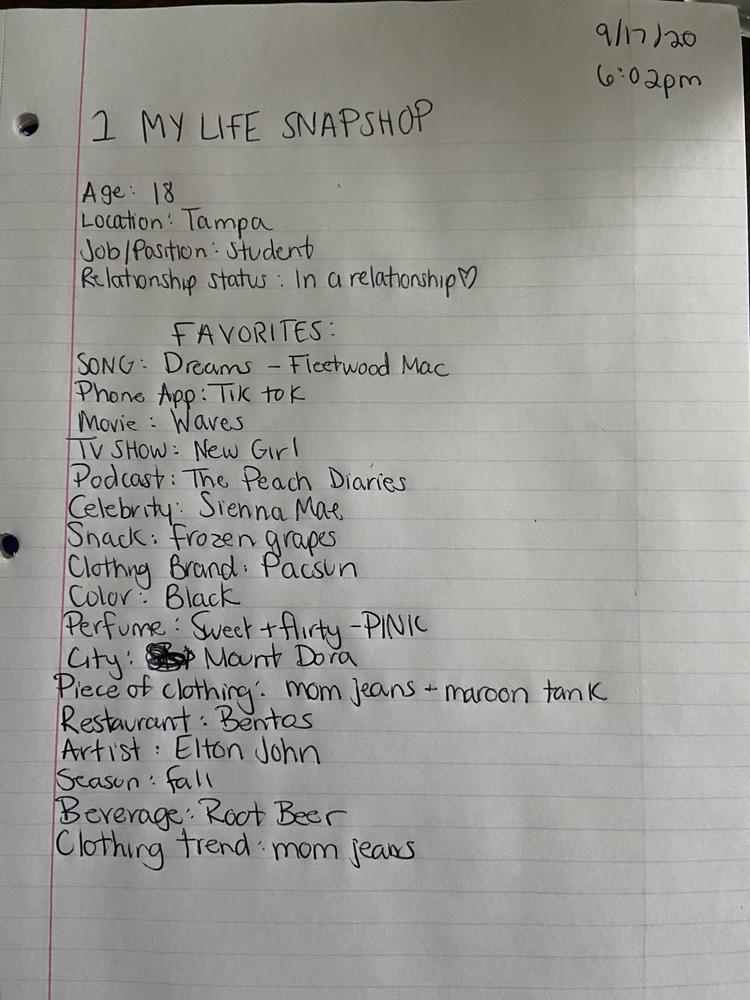 9/17/20
6:02pm
1 MY LIFE SNAPSHOP
Age: 18
Location: Tampa
Job/Position: Student
Relationship status: In a relationship♡
FAVORITES:
SONG: Dreams - Fleetwood Mac
Phone App: Tik tok
Movie: Waves
TV SHOW: New Girl
Podcast: The Peach Diaries
Celebrity: Sienna Mae
Snack: frozen grapes
Clothng Brand: Pacsun
Color: Black
Perfume: Sweet + flirty - PINK
City: Mount Dora
Piece of clothing: mom jeans + maroon tank
Restaurant: Bentos
Artist: Elton John
Season: fall
Beverage: Root Beer
Clothing trend: mom jeans